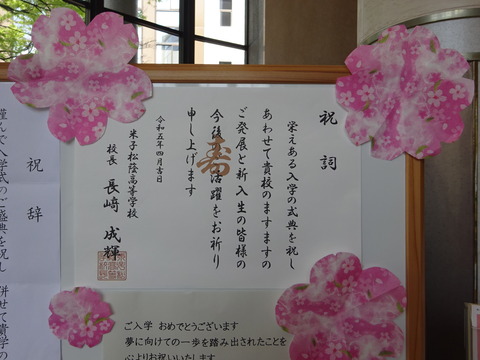 祝詞
栄えある入学の式典を祝し
あわせて貴校のますますの
ご発展と新入生の皆様の
今後の活躍をお祈り
申し上げます
寿
令和五年四月吉日
米子松蔭高等学校
校長 長﨑成輝
祝辞
謹んで入学式のご盛典を祝し
併せて貴学の
ご入学 おめでとうございます
夢に向けての一歩を踏み出されたことを
心よりお祝いいたします